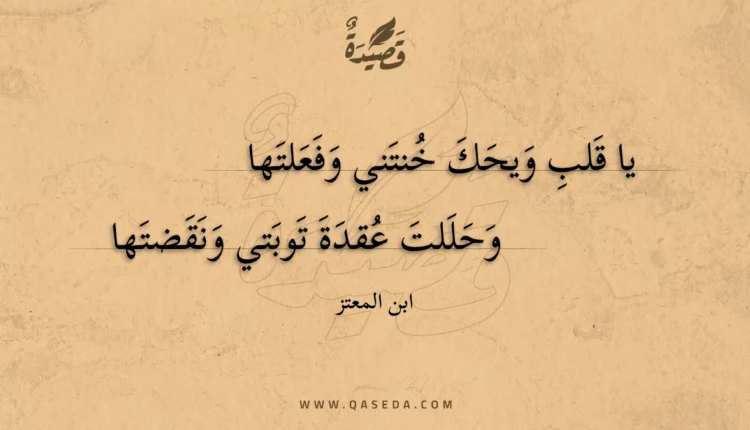 قَصِيْدَةٌ
يا قَلبِ وَيحَكَ خُنتَني وَفَعَلتَها
وَحَلَلتَ عُقدَةَ تَوبَتي وَنَقَضتَها
ابن المعتز
WWW.QASEDA.COM